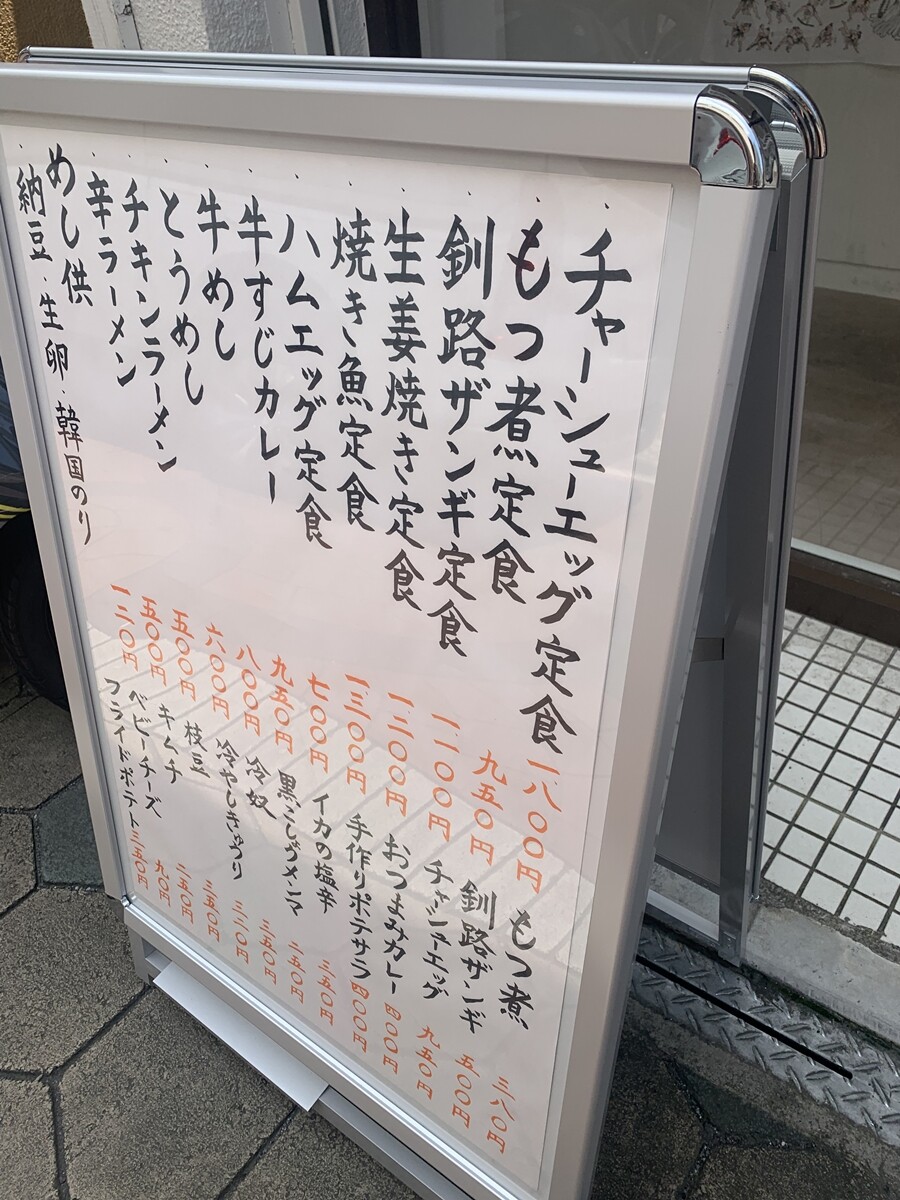 ・チャーシューエッグ定食 一八〇〇円
・もつ煮定食 九五〇円
・釧路ザンギ定食 一一〇〇円
・生姜焼き定食 一二〇〇円
・焼き魚定食 一三〇〇円
・ハムエッグ定食 七〇〇円
・牛すじカレー 九五〇円
・牛めし 八〇〇円
・とうめし 六〇〇円
・チキンラーメン 五〇〇円
・辛ラーメン 五〇〇円
・めし供 一二〇円
納豆・生卵・韓国のり
もつ煮 三八〇円
釧路ザンギ 五〇〇円
チャーシューエッグ 九五〇円
おつまみカレー 四〇〇円
手作りポテサラ 四〇〇円
イカの塩辛 三五〇円
黒こしょうメンマ 二五〇円
冷奴 三五〇円
冷やしきゅうり 三二〇円
枝豆 三五〇円
キムチ 二五〇円
ベビーチーズ 九〇円
フライドポテト 三五〇円